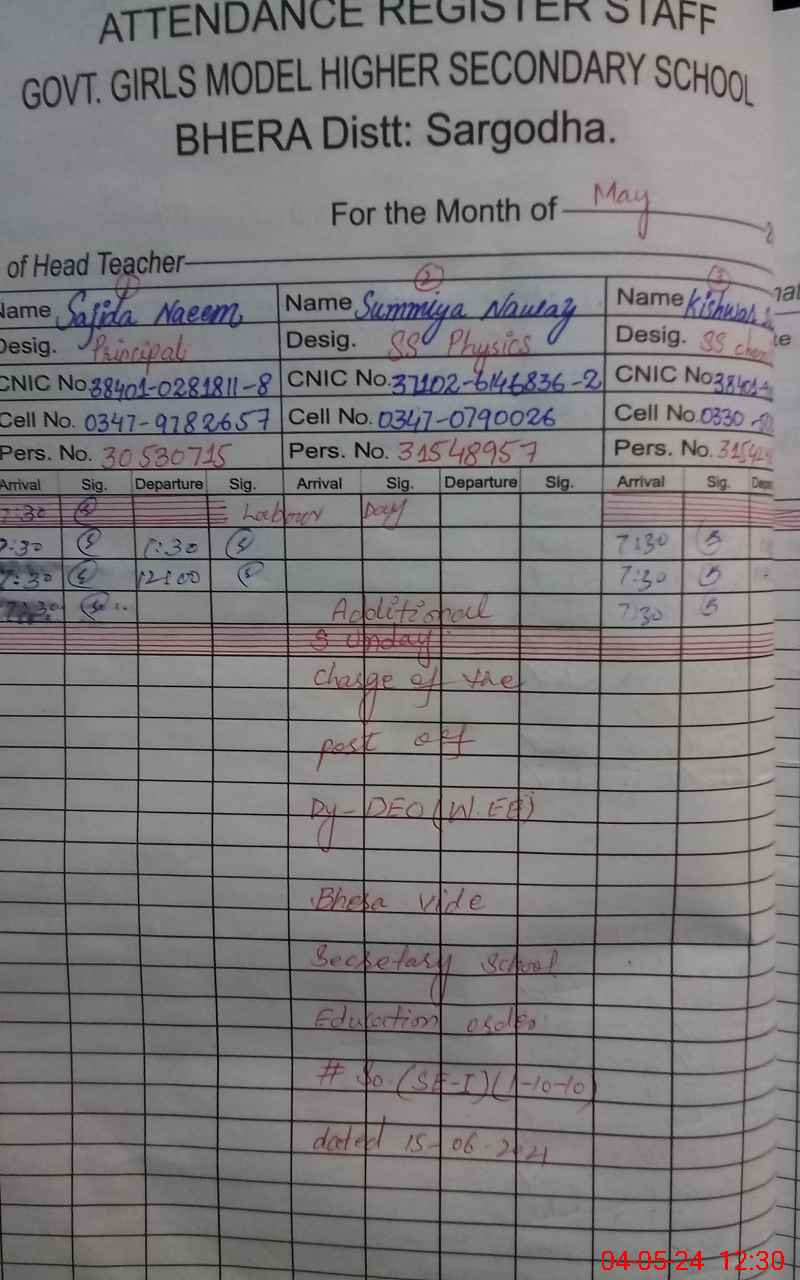 ATTENDANCE REGISTER STAFF
GOVT. GIRLS MODEL HIGHER SECONDARY SCHOOL
BHERA Distt: Sargodha.
For the Month of May
of Head Teacher
1 2 3
Name Sajida Naeem Name Summiya Nawaz Name Kishwar
Desig. Principal Desig. SS Physics Desig. SS chem
CNIC No. 38401-0281811-8 CNIC No. 37102-6146836-2 CNIC No. 38401-
Cell No. 0347-9782657 Cell No. 0347-0790026 Cell No. 0330
Pers. No. 30530715 Pers. No. 31548957 Pers. No. 3154
Arrival Sig. Departure Sig. Arrival Sig. Departure Sig. Arrival Sig.
7:30 Labour Day
7:30 1:30 7:30
7:30 12:00 7:30
7:30 Additional 7:30
Sunday
charge of the
post of
Dy-DEO (W.EE)
Bhera vide
Secretary School
Education order
# So.(SE-I)(1-10-10)
dated 15-06-2021
04-05-24 12:30